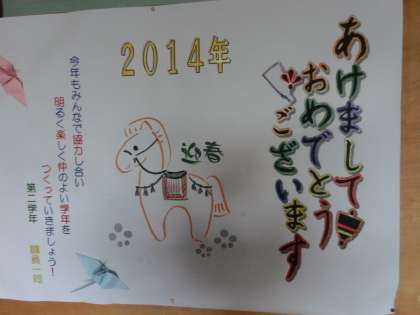 2014年
あけまして
おめでとう
ございます
迎春
今年もみんなで協力し合い
明るく楽しく仲のよい学年を
つくっていきましょう!
第二学年 職員一同